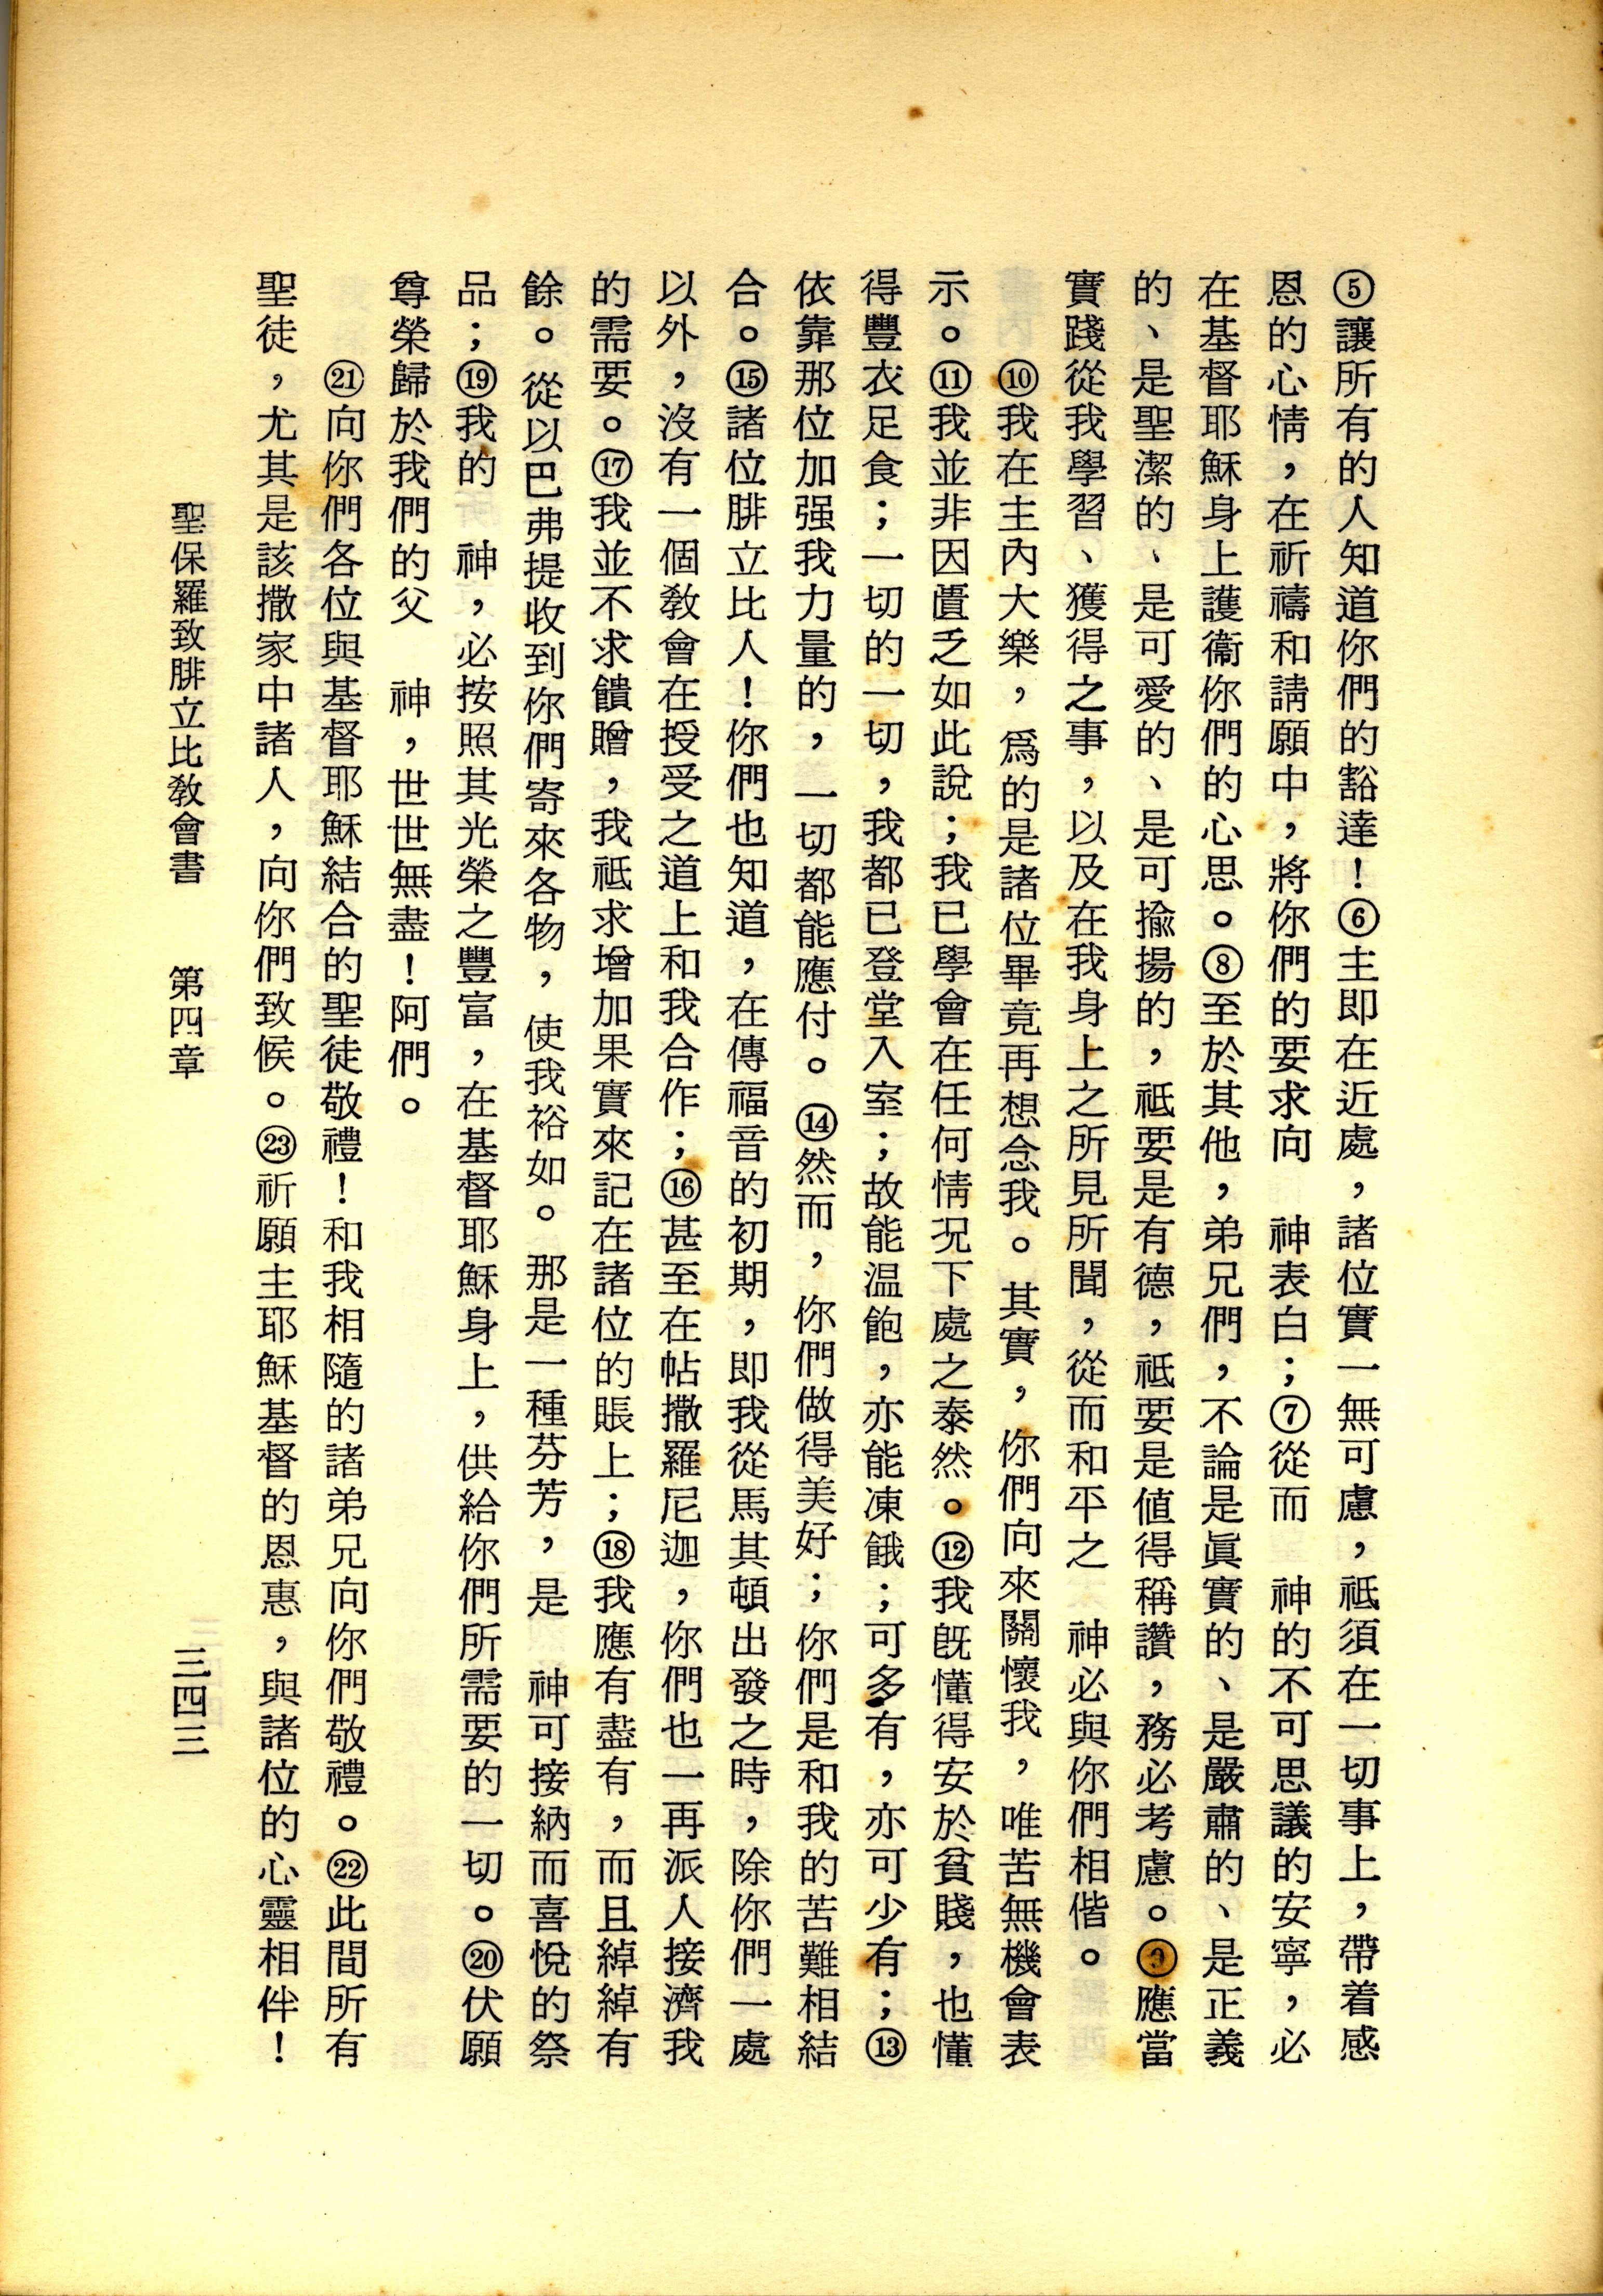 ⑤讓所有的人知道你們的豁達！⑥主即在近處，諸位實一無可慮，祗須在一切事上，帶着感
恩的心情，在祈禱和請願中，將你們的要求向　神表白；⑦從而　神的不可思議的安寧，必
在基督耶穌身上護衞你們的心思。⑧至於其他，弟兄們，不論是眞實的、是嚴肅的、是正義
的、是聖潔的、是可愛的、是可揄揚的，祗要是有德，祗要是値得稱讚，務必考慮。⑨應當
實踐從我學習、獲得之事，以及在我身上之所見所聞，從而和平之　神必與你們相偕。
⑩我在主內大樂，爲的是諸位畢竟再想念我。其實，你們向來關懷我，唯苦無機會表
示。⑪我並非因匱乏如此說；我已學會在任何情況下處之泰然。⑫我旣懂得安於貧賤，也懂
得豐衣足食；一切的一切，我都已登堂入室；故能温飽，亦能凍餓；可多有，亦可少有；⑬
依靠那位加强我力量的，一切都能應付。⑭然而，你們做得美好；你們是和我的苦難相結
合。⑮諸位腓立比人！你們也知道，在傳福音的初期，即我從馬其頓出發之時，除你們一處
以外，沒有一個敎會在授受之道上和我合作；⑯甚至在帖撒羅尼迦，你們也一再派人接濟我
的需要。⑰我並不求饋贈，我祗求增加果實來記在諸位的賬上；⑱我應有盡有，而且綽綽有
餘。從以巴弗提收到你們寄來各物，使我裕如。那是一種芬芳，是　神可接納而喜悅的祭
品；⑲我的　神，必按照其光榮之豐富，在基督耶穌身上，供給你們所需要的一切。⑳伏願
尊榮歸於我們的父　神，世世無盡！阿們。
㉑向你們各位與基督耶穌結合的聖徒敬禮！和我相隨的諸弟兄向你們敬禮。㉒此間所有
聖徒，尤其是該撒家中諸人，向你們致候。㉓祈願主耶穌基督的恩惠，與諸位的心靈相伴！
聖保羅致腓立比敎會書　第四章　三四三